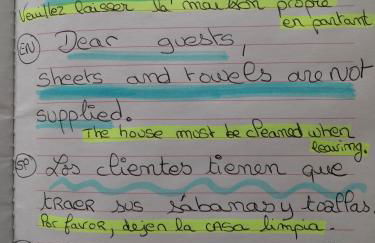 Veuillez laisser la maison propre
en partant
EN Dear guests,
sheets and towels are not
supplied.
The house must be cleaned when
leaving.
SP Los clientes tienen que
traer sus sábanas y toallas.
Por favor, dejen la casa limpia.